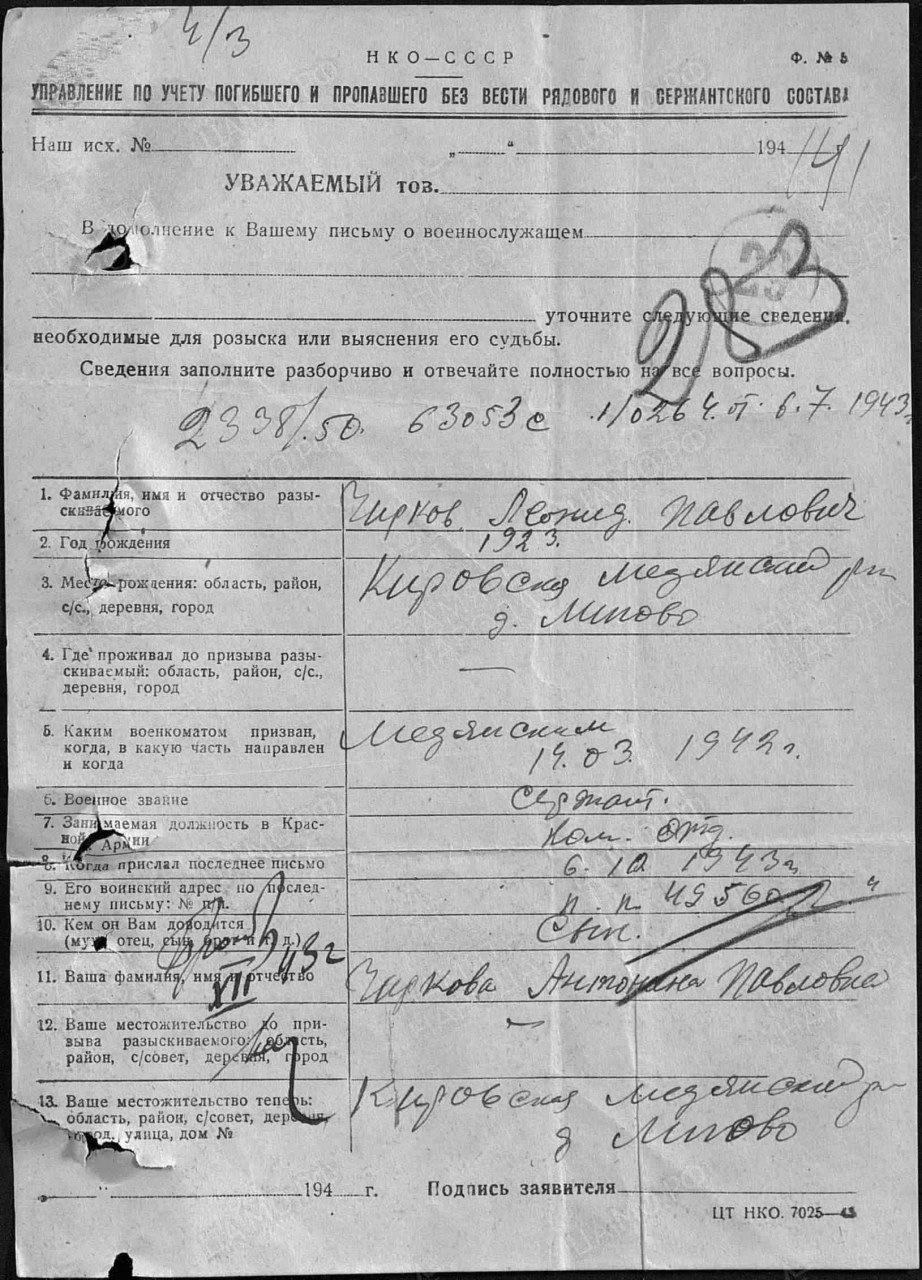 4/3
НКО—СССР
Ф. № 5
УПРАВЛЕНИЕ ПО УЧЕТУ ПОГИБШЕГО И ПРОПАВШЕГО БЕЗ ВЕСТИ РЯДОВОГО И СЕРЖАНТСКОГО СОСТАВА
Наш исх. № „ “ 194
УВАЖАЕМЫЙ тов.
В дополнение к Вашему письму о военнослужащем
283
уточните следующие сведения,
необходимые для розыска или выяснения его судьбы.
Сведения заполните разборчиво и отвечайте полностью на все вопросы.
2338/.50. 63053с 6.7. 1943
1. Фамилия, имя и отчество разы-
скиваемого
Чирков Леонид Павлович
2. Год рождения
1923.
3. Место рождения: область, район,
с/с., деревня, город
Кировская Медянский рн
д. Липово
4. Где проживал до призыва разы-
скиваемый: область, район, с/с.,
деревня, город
—
5. Каким военкоматом призван,
когда, в какую часть направлен
и когда
Медянским
14.03. 1942г.
6. Военное звание
сержант.
7. Занимаемая должность в Крас-
ной Армии
Ком. отд.
8. Когда прислал последнее письмо
6. 10 1943г
9. Его воинский адрес по послед-
нему письму: № п/п.
п. п. 49560
10. Кем он Вам доводится
(муж, отец, сын, брат и т. д.)
Сын.
XII 43г
11. Ваша фамилия, имя и отчество
Чиркова Антонина Павловна
12. Ваше местожительство до при-
зыва разыскиваемого: область,
район, с/совет, деревня, город
—
13. Ваше местожительство теперь:
область, район, с/совет, деревня,
город, улица, дом №
Кировская Медянский рн
д Липово
„ “ 194 г. Подпись заявителя
ЦТ НКО. 7025—45